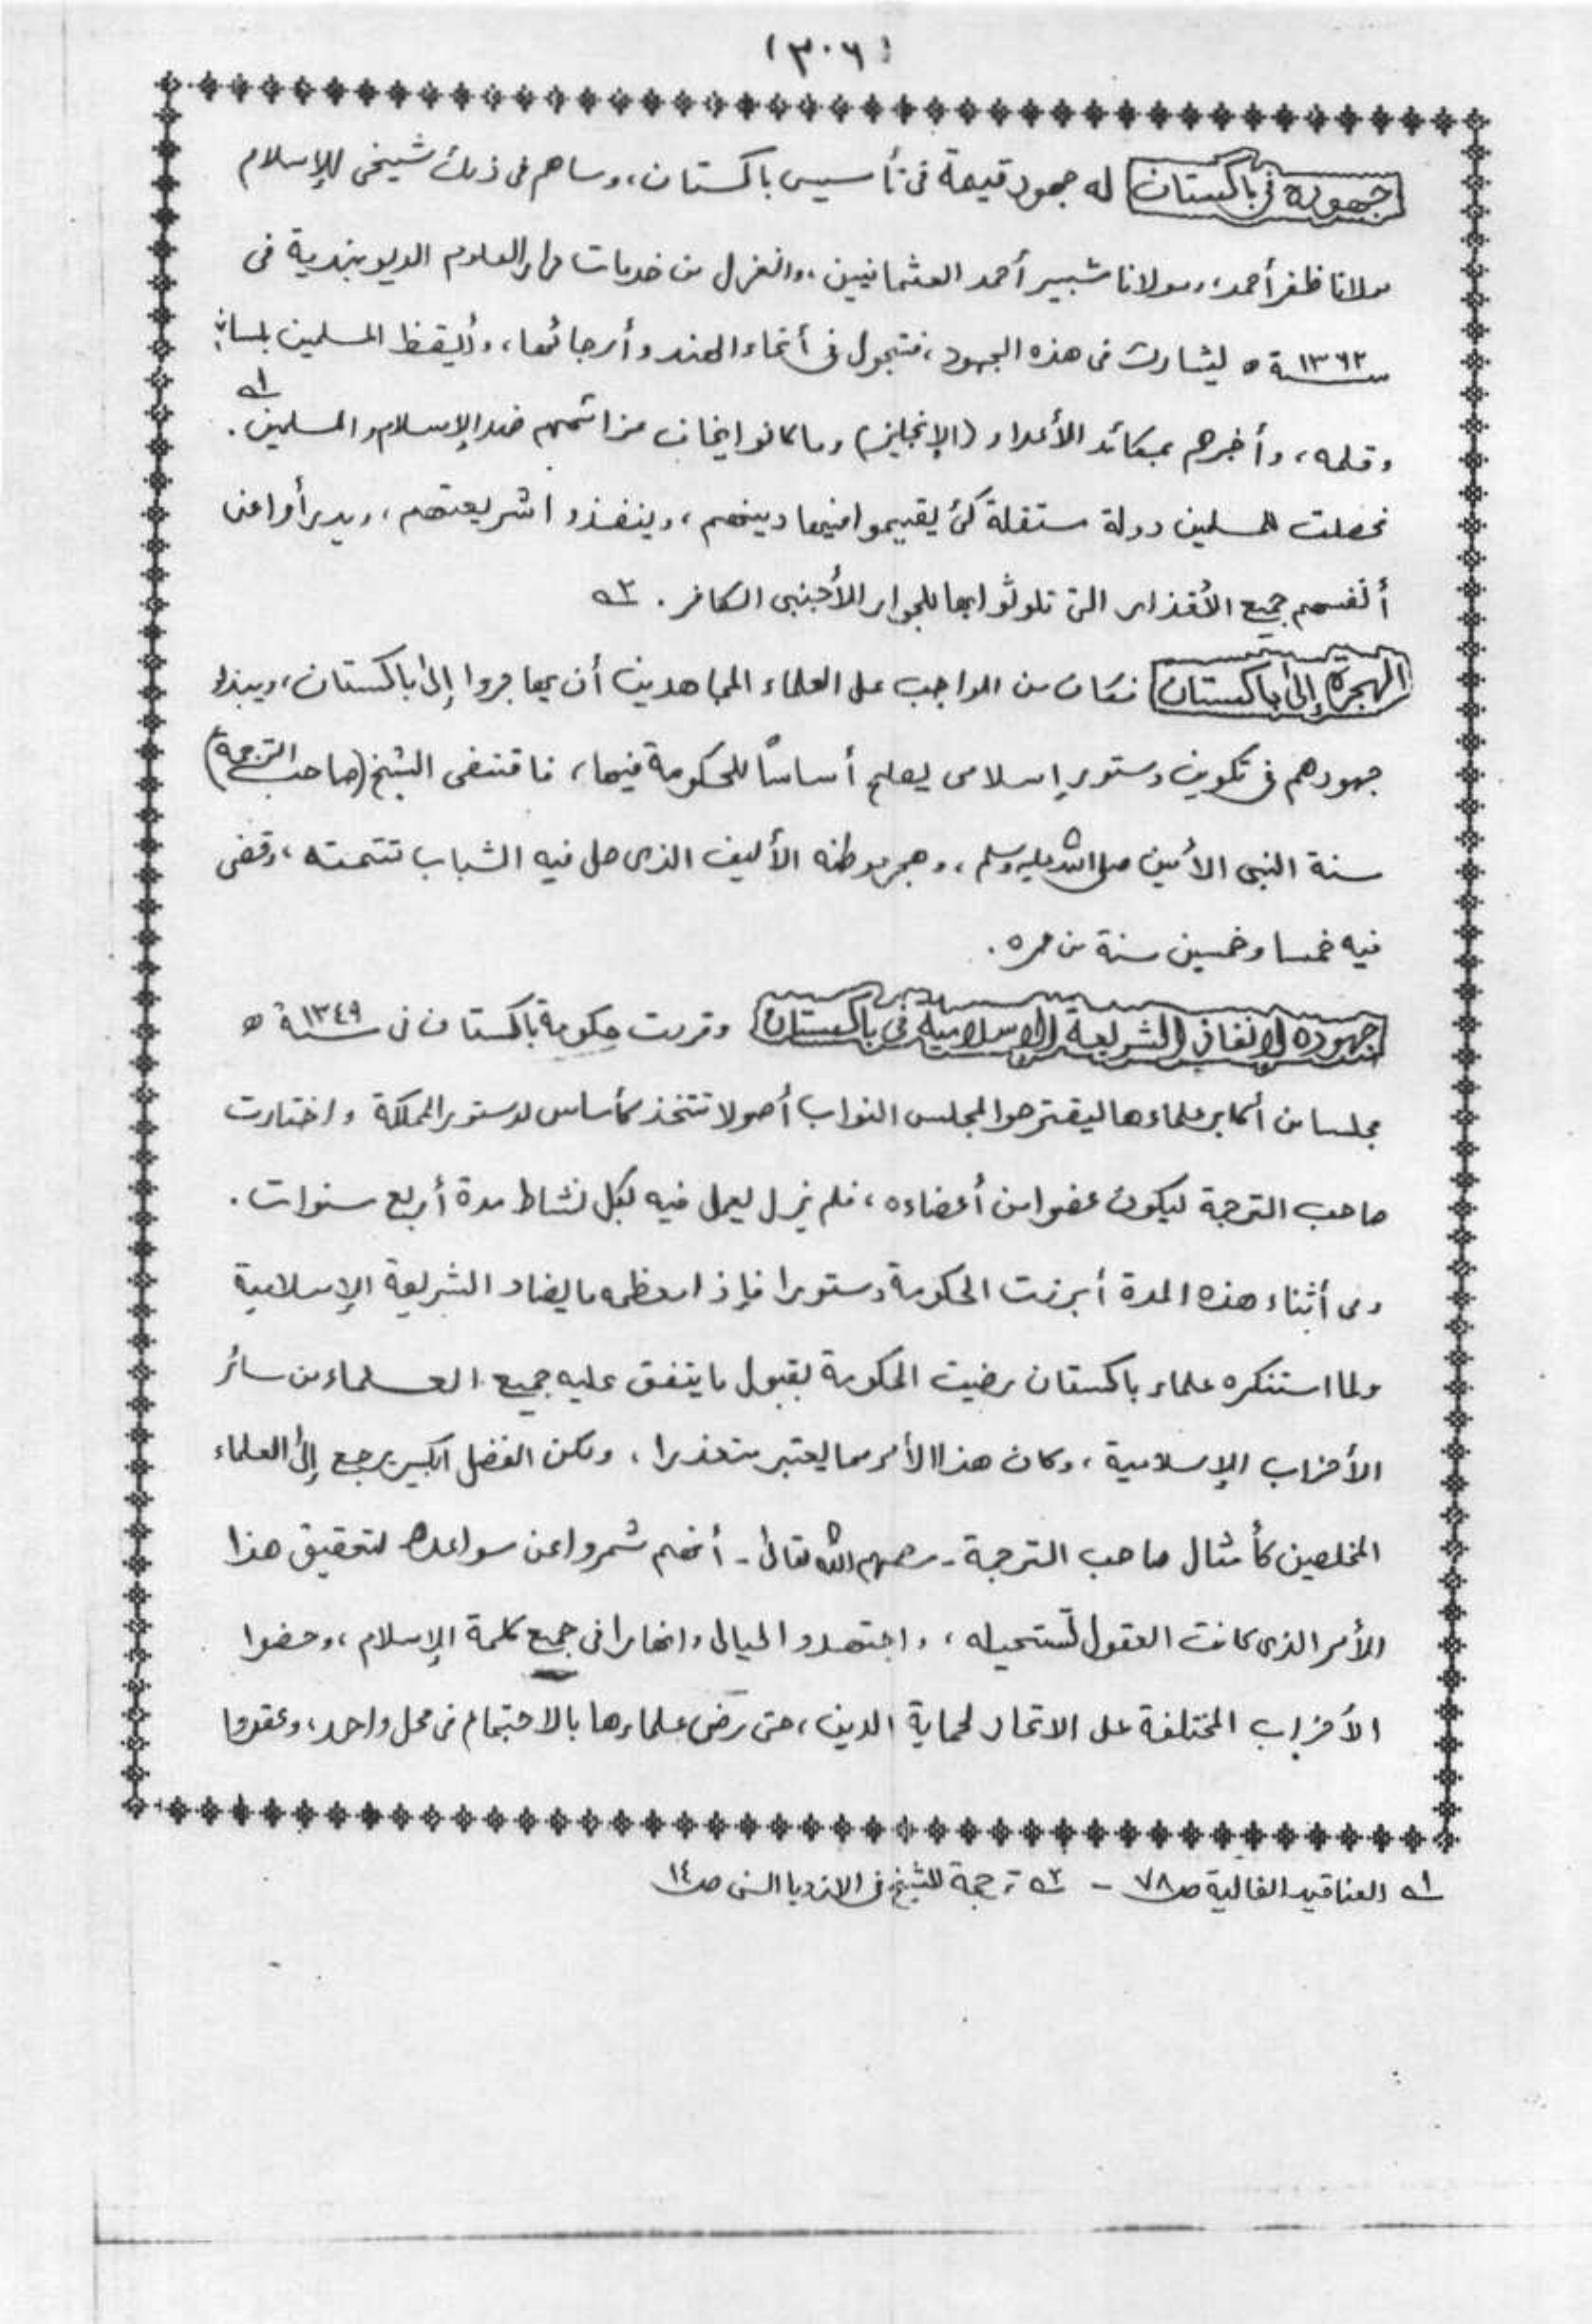 (٣٠٦)
جهوده في باكستان له جهود قيمة في تأسيس باكستان، وساهم في ذلك شيخي الإسلام
مولانا ظفر أحمد، ومولانا شبير أحمد العثمانيين، وانعزل من خدمات دار العلوم الديوبندية في
سنة ١٣٦٢ ه ليشارك في هذه الجهود، فتجول في أنحاء الهند وأرجائها، وأيقظ المسلمين بلسانه
وقلمه، وأخبرهم بمكائد الأعداء (الإنجليز) وما كانوا يخاف من اتهم ضد الإسلام والمسلمين. ١ه
فحصلت للمسلمين دولة مستقلة كي يقيموا فيها دينهم، وينفذوا شريعتهم، ويدرأوا عن
أنفسهم جميع الأقذار التي تلوثوا بها بالجوار الأجنبي الكافر. ٢ه
الهجرة إلى باكستان فكان من الواجب على العلماء المجاهدين أن يهاجروا إلى باكستان، ويبذلوا
جهودهم في تكوين دستور إسلامي يصلح أساسًا للحكومة فيها، فاقتفى الشيخ (صاحب الترجمة)
سنة النبي الأمين صلى الله عليه وسلم، وهجر موطنه الأليف الذي حل فيه الشباب تتمته، وقضى
فيه خمسا وخمسين سنة من عمره.
جهوده لإنفاذ الشريعة الإسلامية في باكستان وقررت حكومة باكستان في سنة ١٣٤٩ ه
مجلسا من أكابر علماءها ليقترحوا لمجلس النواب أصولا تتخذ كأساس لدستور المملكة واختارت
صاحب الترجمة ليكون عضوا من أعضاءه، فلم يزل يعمل فيه بكل نشاط مدة أربع سنوات.
وفي أثناء هذه المدة أبرزت الحكومة دستورا فإذا معظمه ما يضاد الشريعة الإسلامية
ولما استنكره علماء باكستان رضيت الحكومة بقبول ما يتفق عليه جميع العلماء من سائر
الأحزاب الإسلامية، وكان هذا الأمر مما يعتبر متعذرا، ولكن الفضل الكبير يرجع إلى العلماء
المخلصين كأمثال صاحب الترجمة - رحمهم الله تعالى - أنهم شمروا عن سواعدهم لتحقيق هذا
الأمر الذي كانت العقول تستحيله، واجتهدوا ليالي وانهارا في جميع كلمة الإسلام، وحضوا
الأحزاب المختلفة على الاتحاد لحماية الدين، حتى رضى علماءها بالاجتماع في محل واحد، وعقدوا
١ه العناقيد الغالية ص ٧٨ - ٢ه ترجمة للشيخ في الازدياد السني ص ١٤